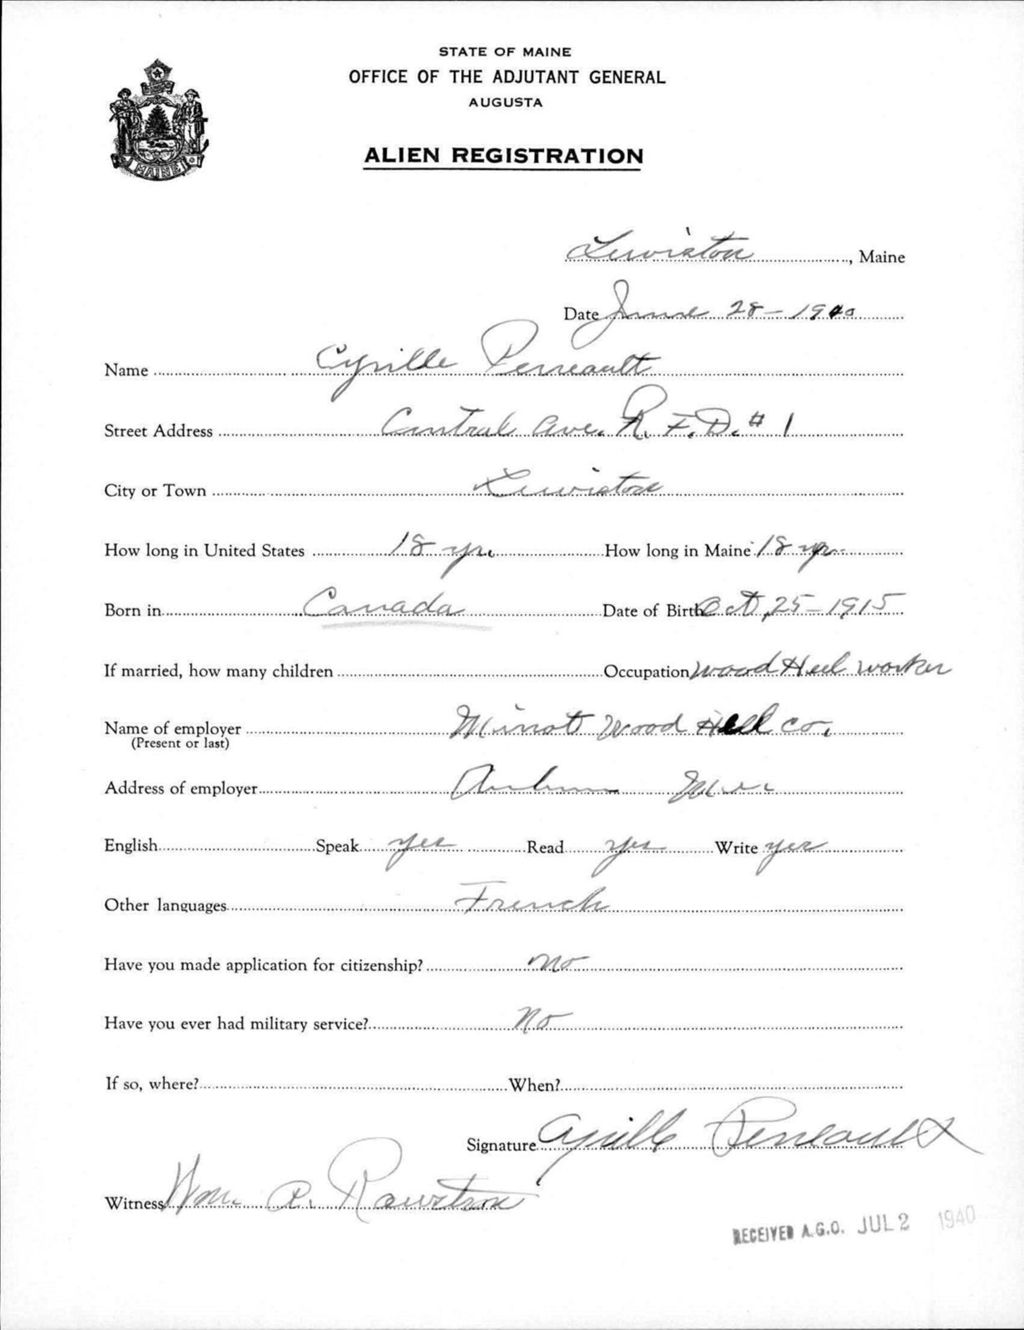 STATE OF MAINE
OFFICE OF THE ADJUTANT GENERAL
AUGUSTA
ALIEN REGISTRATION
MAINE
Lewiston, Maine
Date June 28 - 1940
Name Cyrille Perreault
Street Address Central Ave. R. F. D. # 1
City or Town Lewiston
How long in United States 18 yrs How long in Maine 18 yrs
Born in Canada Date of Birth Oct, 25 - 1915
If married, how many children Occupation Wood Heel worker
Name of employer Minot Wood Heel Co.
(Present or last)
Address of employer Auburn Me
English Speak yes Read yes Write yes
Other languages French
Have you made application for citizenship? no
Have you ever had military service? No
If so, where? When?
Signature Cyrille Perreault
Witness Wm. R. Rawstron
RECEIVED A.G.O. JUL 2 1940